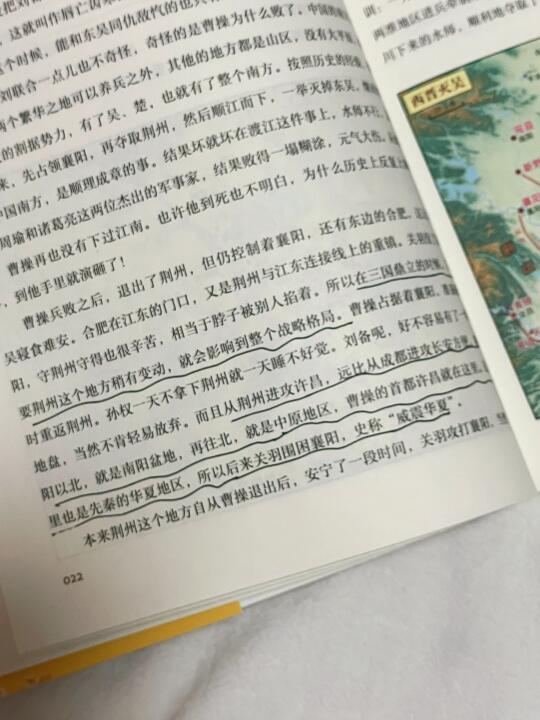 这就叫作唇亡齿寒
个时候，能和东吴同仇敌忾的也只
刘联合一点儿也不奇怪，奇怪的是曹操为什么败了。中国的
两个繁华之地可以养兵之外，其他的地方都是山区，没有太平
的割据势力，有了吴、楚，也就有了整个南方。按照历史的
来，先占领襄阳，再夺取荆州，然后顺江而下，一举灭掉东吴，
中国南方，是顺理成章的事。结果坏就坏在渡江这件事上，水师不行，
周瑜和诸葛亮这两位杰出的军事家，结果败得一塌糊涂，元气大伤，
曹操再也没有下过江南。也许他到死也不明白，为什么历史上反复上
，到他手里就演砸了！
曹操兵败之后，退出了荆州，但仍控制着襄阳，还有东边的合肥，
吴寝食难安。合肥在江东的门口，又是荆州与江东连接线上的重镇。关羽
阳，守荆州守得也很辛苦，相当于脖子被别人掐着。所以在三国鼎立的时候，
要荆州这个地方稍有变动，就会影响到整个战略格局。曹操占据着襄阳，
时重返荆州。孙权一天不拿下荆州就一天睡不好觉。刘备呢，好不容易有了一
地盘，当然不肯轻易放弃。而且从荆州进攻许昌，远比从成都进攻长安方便，
阳以北，就是南阳盆地，再往北，就是中原地区，曹操的首都许昌就在这里。
里也是先秦的华夏地区，所以后来关羽围困襄阳，史称“威震华夏”。
本来荆州这个地方自从曹操退出后，安宁了一段时间，关羽攻打襄阳，
022
训：
两淮地区进兵
川下来的水师，顺利地夺取了
西晋灭吴